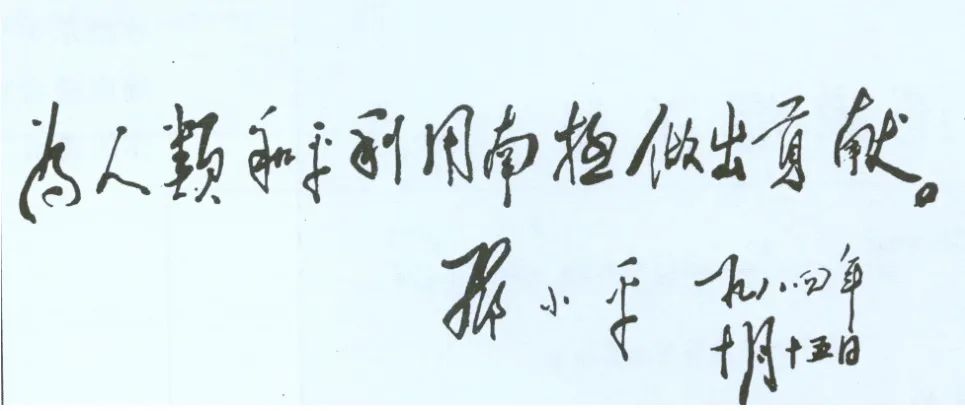 为人類和平利用南極做出貢献。
鄧小平 一九八四年
十月十五日